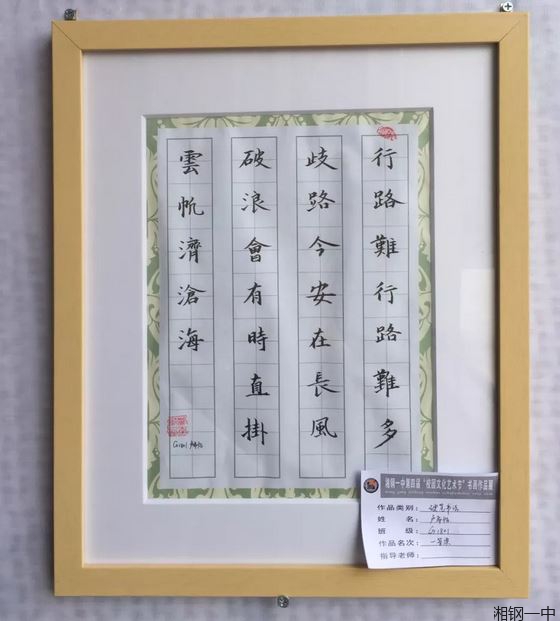 行路難行路難多
歧路今安在長風
破浪會有時直掛
雲帆濟滄海
G1801
湘钢一中第四届“校园文化艺术节”书画作品展
作品类别：硬笔书法
姓名：
班级：G1801
作品名次：一等奖
指导老师：
湘钢一中